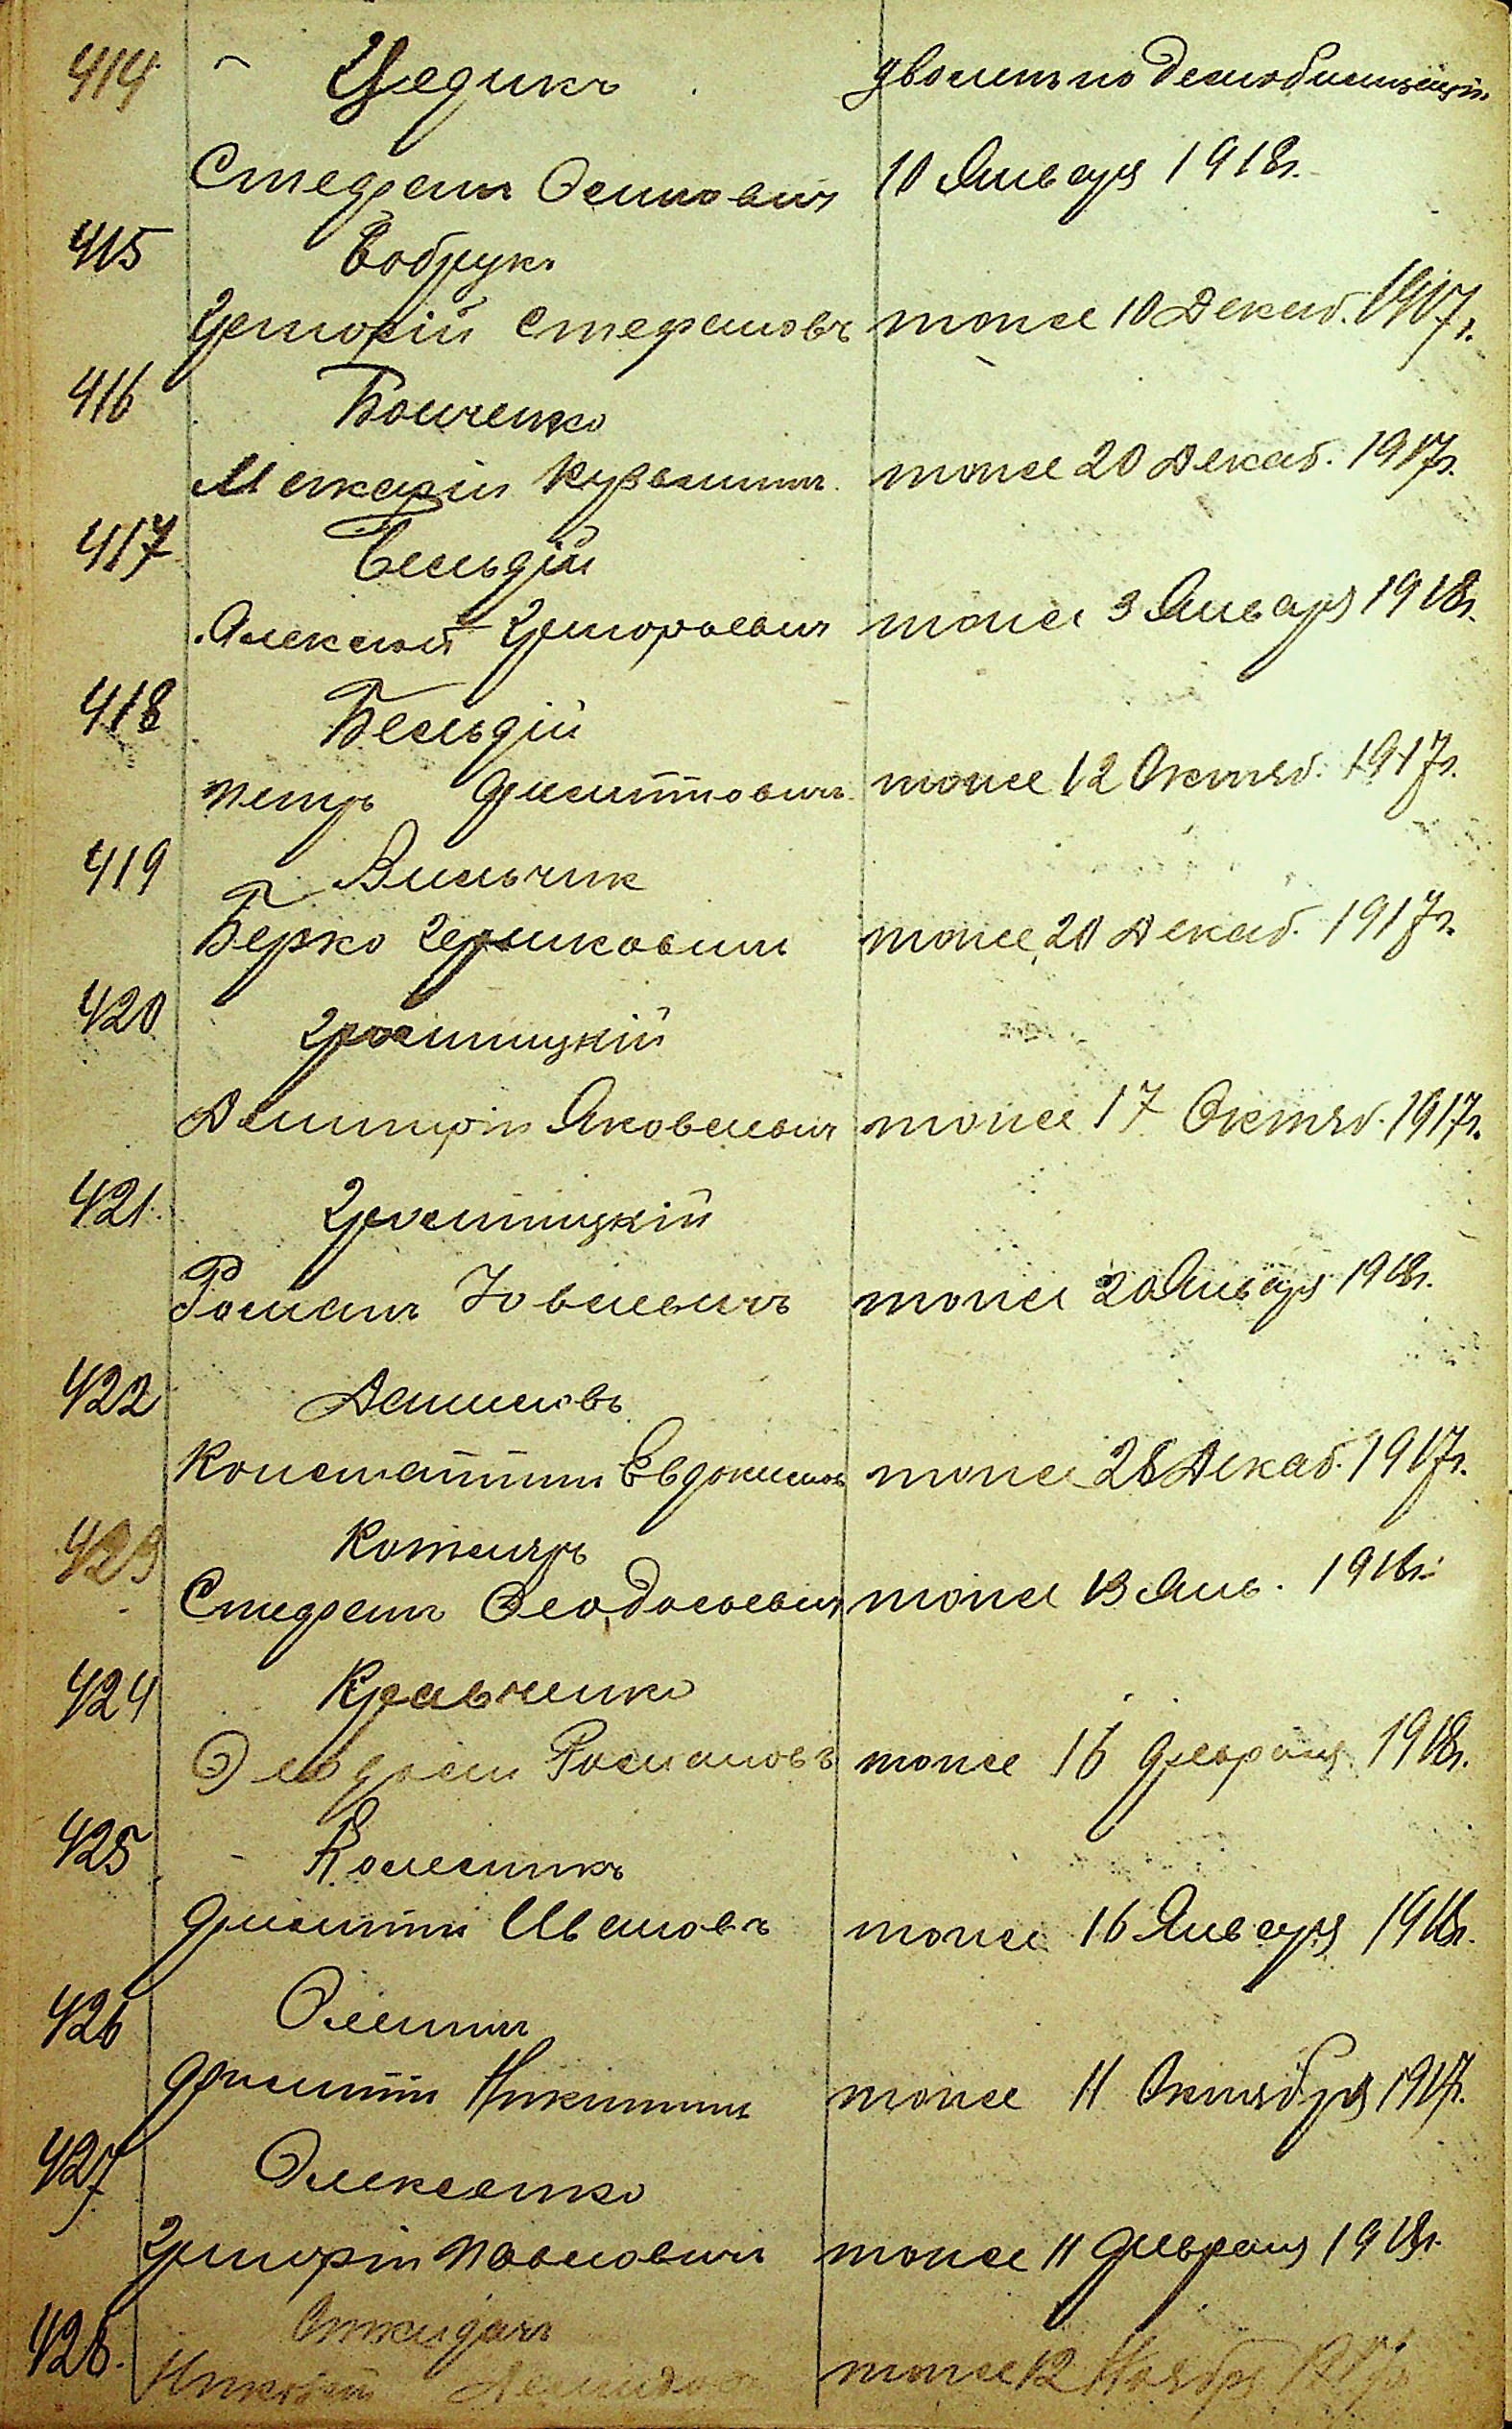 414 Цедикъ уволенъ по демобилизаціи
Стефанъ Осиповичъ 10 Января 1918г.
415 Бобрукъ
Григорій Стефановъ тоже 10 Декаб. 1917г.
416 Бойченко
Макарій Кузьминъ тоже 20 Декаб. 1917г.
417 Бельдій
Алексѣй Григорьевич тоже 3 Января 1918г.
418 Бельдій
Петръ Филиппович тоже 12 Октяб. 1917г.
419 Вильчик
Берко Гершкович тоже 20 Декаб. 1917г.
420 Гросницкій
Дмитрій Яковлевич тоже 17 Октяб. 1917г.
421 Гросницкій
Романъ Іовлевичъ тоже 20 Января 1918г.
422 Даниловъ
Константинъ Евдокимов тоже 28 Декаб. 1917г.
423 Котляръ
Стефанъ Феодосьевич тоже 13 Янв. 1918г.
424 Кравченко
Романовъ тоже 16 Февраля 1918г.
425 Колесникъ
Филиппъ Ивановъ тоже 16 Января 1918г.
426 Оленинъ
Филиппъ Никитинъ тоже 11 Октября 1917г.
427 Олексенко
Григорій Павловичъ тоже 11 Февраля 1918г.
428.
Николай тоже 12 Ноября 1917г.